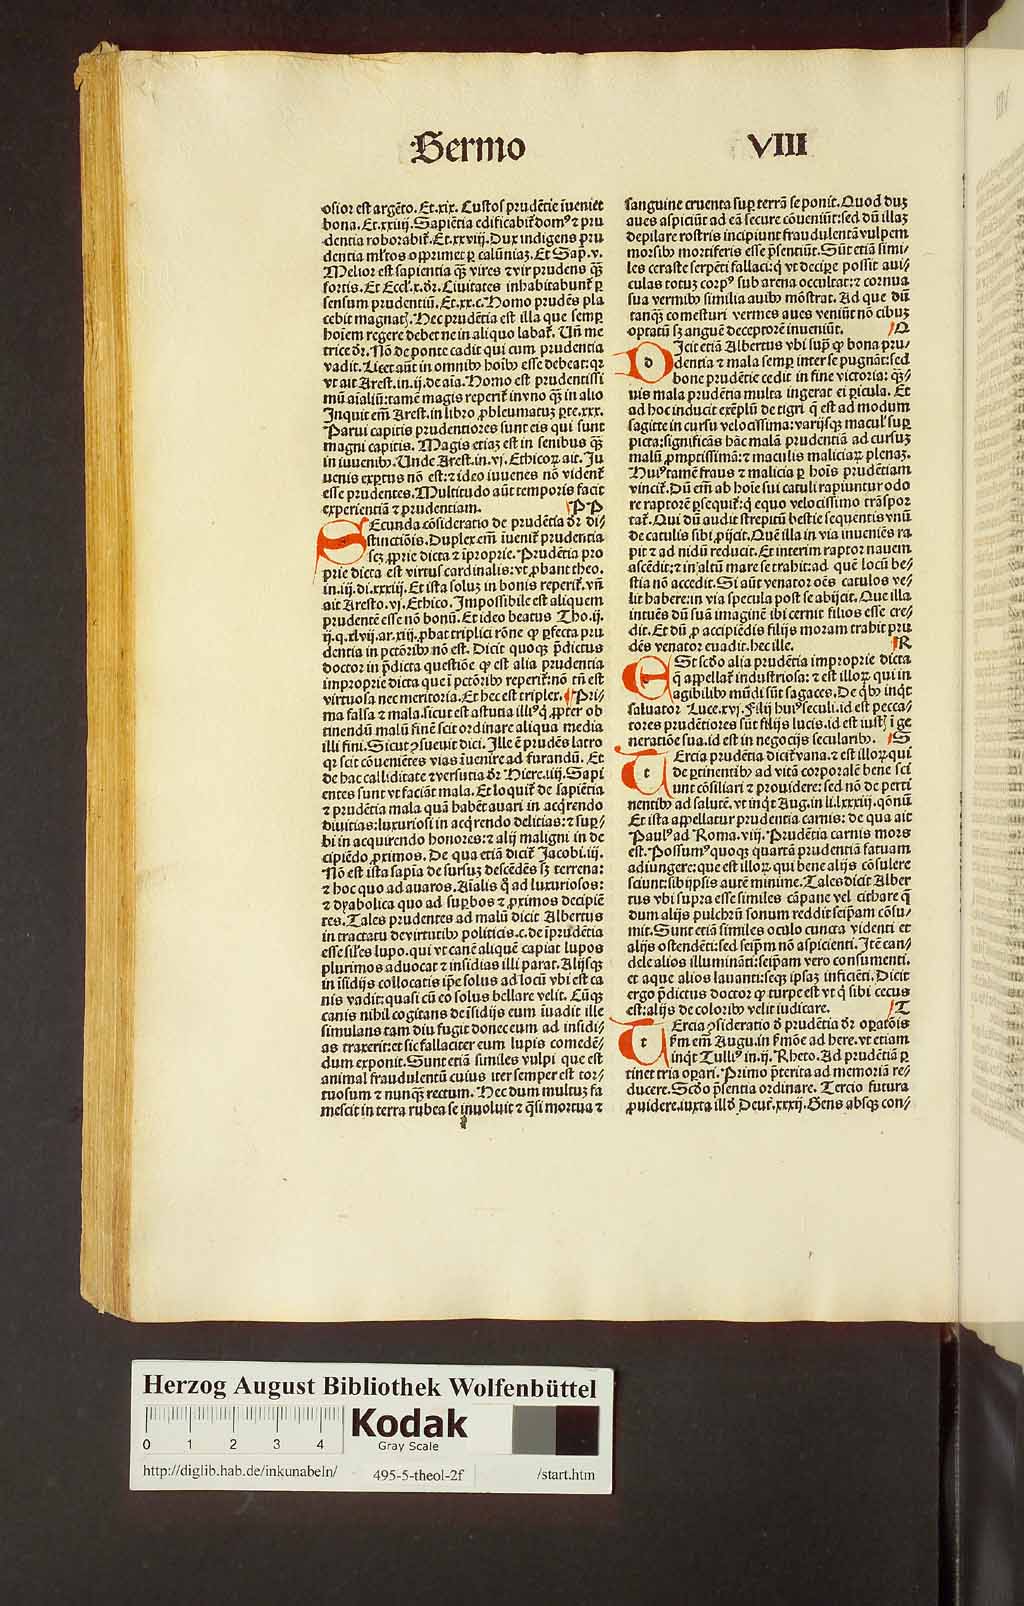 Sermo VIII
osior est argēto. Et.xix. Custos prudētie īueniet
bona. Et.xxiiij. Sapiētia edificabit᷑ domꝰ ⁊ pru
dentia roborabit᷑. Et.xxviij. Dux indigens pru
dentia ml'tos opprimet ꝑ calūniaꝫ. Et Sap̄.v.
Melior est sapientia qꝫ̄ vires ⁊ vir prudens qꝫ̄
fortis. Et Eccl'.x. dr̄. Ciuitates inhabitabunt᷑ ꝑ
sensum prudentiū. Et.xx.c. Homo prudēs pla
cebit magnatꝫ. Hec prudētia est illa que semꝑ
hoiem regere debet ne in aliquo labat᷑. Uñ me
trice dr̄. Nō de ponte cadit qui cum prudentia
vadit. Licet aūt in omnibꝰ hoībꝰ esse debeat: qꝛ
vt ait Arest. in.ij. de aīa. Homo est prudentissi
mū aīaliū: tamē magis reperit᷑ in vno qꝫ̄ in alio
Inquit em̄ Arest. in libro ꝓbleumatuꝫ ꝑte.xxx.
Parui capitis prudentiores sunt eis qui sunt
magni capitis. Magis etiaꝫ est in senibus qꝫ̄
in iuuenibꝰ. Unde Arest. in.vj. Ethicoꝝ. ait. Ju
uenis exꝑtus nō est: ⁊ ideo iuuenes nō vident᷑
esse prudentes. Multitudo aūt temporis facit
experientiā ⁊ prudentiam. P P
SEcunda cōsideratio de prudētia dr̄ di/
stinctiōis. Duplex em̄ īuenit᷑ prudentia
scꝫ ꝓprie dicta ⁊ īproprie. Prudētia pro
prie dicta est virtus cardinalis: vt ꝓbant theo.
in.iij. di.xxxiij. Et ista soluꝫ in bonis reperit᷑. vñ
ait Aresto.vj. Ethico. Impossibile est aliquem
prudentē esse nō bonū. Et ideo beatus Tho.ij.
ij.q.xlvij.ar.xiij. ꝓbat triplici rōne ꝙ ꝑfecta pru
dentia in pctōribꝰ nō est. Dicit quoqꝫ p̄dictus
doctor in p̄dicta questiōe ꝙ est alia prudentia
improprie dicta que ī pctōribꝰ reperit᷑: nō tn̄ est
virtuosa nec meritoria. Et hec est triplex. Pri/
ma falsa ⁊ mala. sicut est astutia illiꝰ q̄ ꝓpter ob
tinendū malū finē scit ordinare aliqua media
illi fini. Sicut ꝯsueuit dici. Ille ē prudēs latro
qꝛ scit cōueniētes vias īuenire ad furandū. Et
de hac calliditate ⁊ versutia dr̄ Hiere.iiij. Sapi
entes sunt vt faciāt mala. Et loquit᷑ de sapiētia
⁊ prudētia mala quā habēt auari in acq̄rendo
diuitias: luxuriosi in acq̄rendo delicias: ⁊ suꝑ/
bi in acquirendo honores: ⁊ alij maligni in de
cipiēdo ꝓximos. De qua etiā dicit᷑ Jacobi.iij.
Nō est ista sapiā de sursuꝫ descēdēs sꝫ terrena:
⁊ hoc quo ad auaros. Aīalis q̄ ad luxuriosos:
⁊ dyabolica quo ad suꝑbos ⁊ ꝓximos decipiē
tes. Tales prudentes ad malū dicit Albertus
in tractatu de virtutibꝰ politicis.c.de īprudētia
esse sil'es lupo. qui vt canē aliquē capiat lupos
plurimos aduocat ⁊ insidias illi parat. Alijsqꝫ
in īsidijs collocatis ip̄e solus ad locū vbi est ca
nis vadit: quasi cū eo solus bellare velit. Cūqꝫ
canis nihil cogitans de īsidijs eum īuadit ille
simulans tam diu fugit donec eum ad insidi/
as traxerit: et sic fallaciter eum lupis comedē/
dum exponit. Sunt etiā similes vulpi que est
animal fraudulentū cuius iter semper est tor/
tuosum ⁊ nunqꝫ̄ rectum. Hec dum multuꝫ fa
mescit in terra rubea se inuoluit ⁊ q̄si mortua ⁊
sanguine cruenta suꝑ terrā se ponit. Quod duꝫ
aues aspiciūt ad eā secure cōueniūt: sed dū illaꝫ
depilare rostris incipiunt fraudulentā vulpem
morsibꝰ mortiferis esse p̄sentiūt. Sūt etiā simi/
les ceraste serpēti fallaci: q̄ vt deciꝑe possit aui/
culas totuꝫ corpꝰ sub arena occultat: ⁊ cornua
sua vermibꝰ similia auibꝰ mōstrat. Ad que dū
tanqꝫ̄ comesturi vermes aues veniūt nō cibuꝫ
optatū sꝫ anguē deceptorē inueniūt. Q
DIcit etiā Albertus vbi sup̄ ꝙ bona pru/
dentia ⁊ mala semꝑ inter se pugnāt: sed
bone prudētie cedit in fine victoria: qꝫ̄/
uis mala prudētia multa ingerat ei ꝑicula. Et
ad hoc inducit exēplū de tigri q̄ est ad modum
sagitte in cursu velocissima: varijsqꝫ macul' suꝑ
picta: significās hāc malā prudentiā ad cursuꝫ
malū ꝓmptissimā: ⁊ maculis maliciaꝝ plenaꝫ.
Huiꝰ tamē fraus ⁊ malicia ꝑ hoīs prudētiam
vincit᷑. Dū em̄ ab hoīe sui catuli rapiuntur odo
re raptorē ꝑsequit᷑: q̄ equo velocissimo trāspor
tat᷑. Qui dū audit strepitū bestie sequentis vnū
de catulis sibi ꝓijcit. Quē illa in via inueniēs ra
pit ⁊ ad nidū reducit. Et interim raptor nauem
ascēdit: ⁊ in altū mare se trahit: ad quē locū be/
stia nō accedit. Si aūt venator oēs catulos ve/
lit habere: in via specula post se abijcit. Que illa
intuēs dū suā imaginē ibi cernit filios esse cre/
dit. Et dū ꝓ accipiēdis filijs moram trahit pru
dēs venator euadit. hec ille. R
ESt scd̄o alia prudētia improprie dicta
q̄ appellat᷑ industriosa: ⁊ est illoꝝ qui in
agibilibꝰ mūdi sūt sagaces. De q̄bꝰ inq̄t
saluator Luce.xvj. Filij huiꝰ seculi. id est pecca/
tores prudētiores sūt filijs lucis. id est iustꝭ ī ge
neratiōe sua. id est in negocijs secularibꝰ. S
TErcia prudētia dicit᷑ vana. ⁊ est illoꝝ qui
de ꝑtinentibꝰ ad vitā corporalē bene sci
unt cōsiliari ⁊ prouidere: sed nō de perti
nentibꝰ ad salutē. vt inq̄t Aug. in li.lxxxiij.qōnū
Et ista appellatur prudentia carnis: de qua ait
Paulꝰ ad Roma.viij. Prudētia carnis mors
est. Possumꝰ quoqꝫ quartā prudentiā fatuam
adiungere: que est illoꝝ qui bene alijs cōsulere
sciunt: sibijpsis autē minime. Tales dicit Alber
tus vbi supra esse similes cāpane vel cithare q̄
dum alijs pulchrū sonum reddit seip̄am cōsu/
mit. Sunt etiā similes oculo cuncta videnti et
alijs ostendēti: sed seip̄m nō aspicienti. Itē can/
dele alios illumināti: seip̄am vero consumenti.
et aque alios lauanti: seqꝫ ipsaꝫ inficiēti. Dicit
ergo p̄dictus doctor ꝙ turpe est vt q̄ sibi cecus
est: alijs de coloribꝰ velit iudicare. T
TErcia ꝯsideratio d̄ prudētia dr̄ oꝑatōis
Fm̄ em̄ Augu. in s̄mōe ad here. vt etiam
inq̄t Tulliꝰ in.ij. Rheto. Ad prudētiā ꝑ
tinet tria oꝑari. Primo p̄terita ad memoriā re/
ducere. Scd̄o p̄sentia ordinare. Tercio futura
ꝓuidere. iuxta illd̄ Deut᷑.xxxij. Gens absqꝫ con/
Herzog August Bibliothek Wolfenbüttel
0 1 2 3 4
Kodak
Gray Scale
http://diglib.hab.de/inkunabeln/ 495-5-theol-2f /start.htm